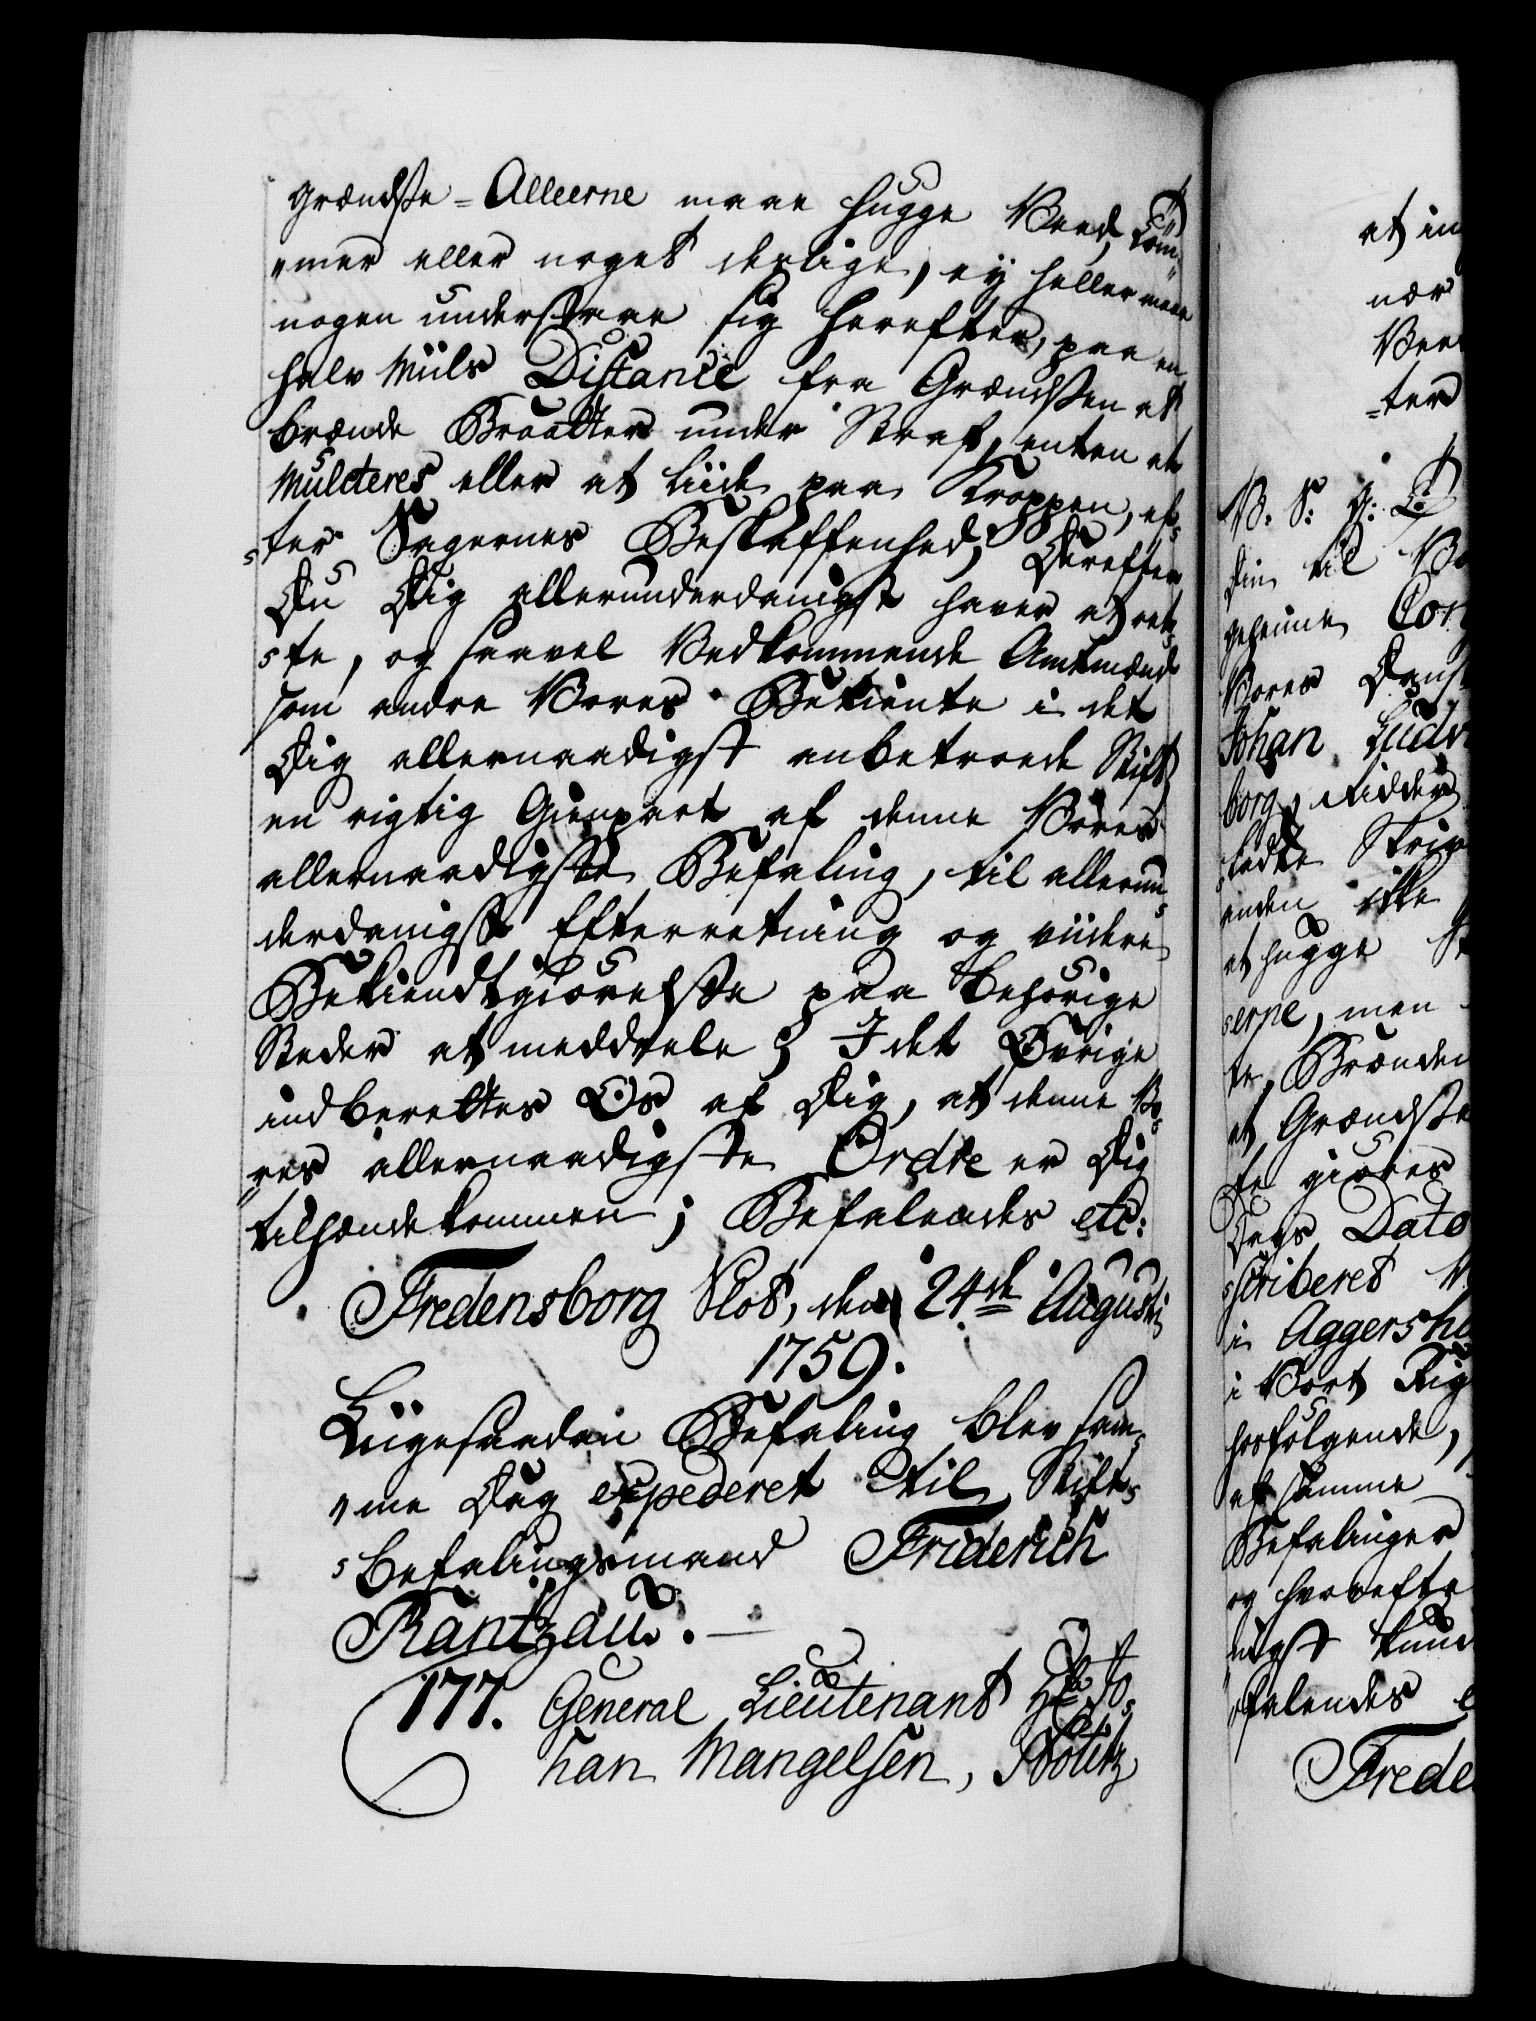 Grændse-Alleerne maae hugge Veed, Töm¬
mer eller noget deslige, ey heller maae
nogen understaae sig herefter, paa en
halv Miils Distance fra Grændsen at
brænde Braatter under Straf, enten at
Mulcteres eller at liide paa Kroppen, ef¬
ter Sagernes Beskaffenhed; Derefter
Du Dig allerunderdanigst haver at ret¬
te, og saavel Vedkommende Amtmænd
som andre Vores Betiente i det
Dig allernaadigst anbetroede Stift
en rigtig Gienpart af denne Vores
allernaadigste Befaling, til allerun¬
derdanigst Efterretning og viidere
Bekiendtgiørelse paa behørige
Steder at meddeele; I det Øvrige
indberettes Os af Dig, at denne Vo¬
res allernaadigste Ordre er Dig
tilhændekommen; Befalendes etc:
Fredensborg Slot, den 24de Augusti
1759.
Liigesaadan Befaling blev sam¬
me Dag expederet til Stift¬
befalingsmand Friderich
Rantzau.
177. General Lieutenant Hr Jo¬
han Mangelsen,
at in
nær
Vee
ter
V: S: G: T
Din til Vo
geheime Con
Vores Dans
Johan Ludv
borg, Ridder
ledte Skriv
anden ikke
at hugge
erne, men
te, Brænden
at Grændse
te giøres
Dags Dato
scriberet
i Aggershu
i Vort Rig
hosfølgende,
af samme
Befalinger
og hvorefte
nigst kund
falendes e
Frede